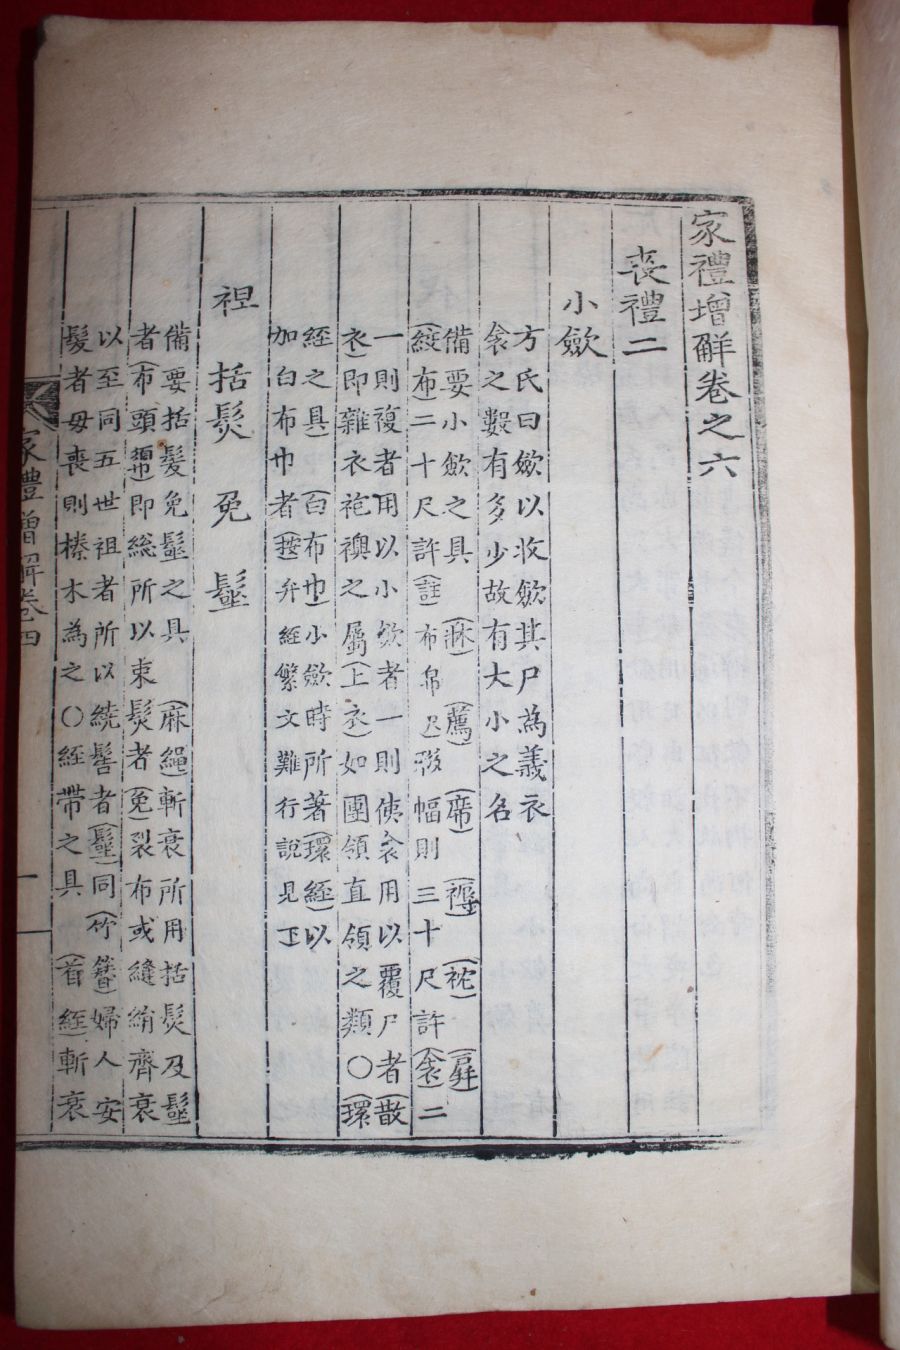 家禮增解卷之六
喪禮二
小斂
方氏曰斂以收斂其尸為義衣
衾之數有多少故有大小之名
備要小斂之具(牀)(薦)(席)(褥)(枕)(屛)
(絞布)二十尺許(註)布帛尺狹幅則三十尺許(衾)二
一則複者用以小斂者一則使衾用以覆尸者(散
衣)即雜衣袍襖之屬(上衣)如團領直領之類○(環
絰之具)(白布巾)小斂時所著(環絰)以
加白布巾者(按)弁絰繁文難行說見下
袒 括髮 免 髽
備要括髮免髽之具(麻繩)斬衰所用括髮及髽
者(布頭𢄼)即總所以束髮者(免)裂布或縫絹齊衰
以至同五世祖者所以繞髻者(髽)同(竹簪)婦人安
髮者母喪則榛木為之○絰帶之具(首絰)斬衰
家禮增解卷四 一